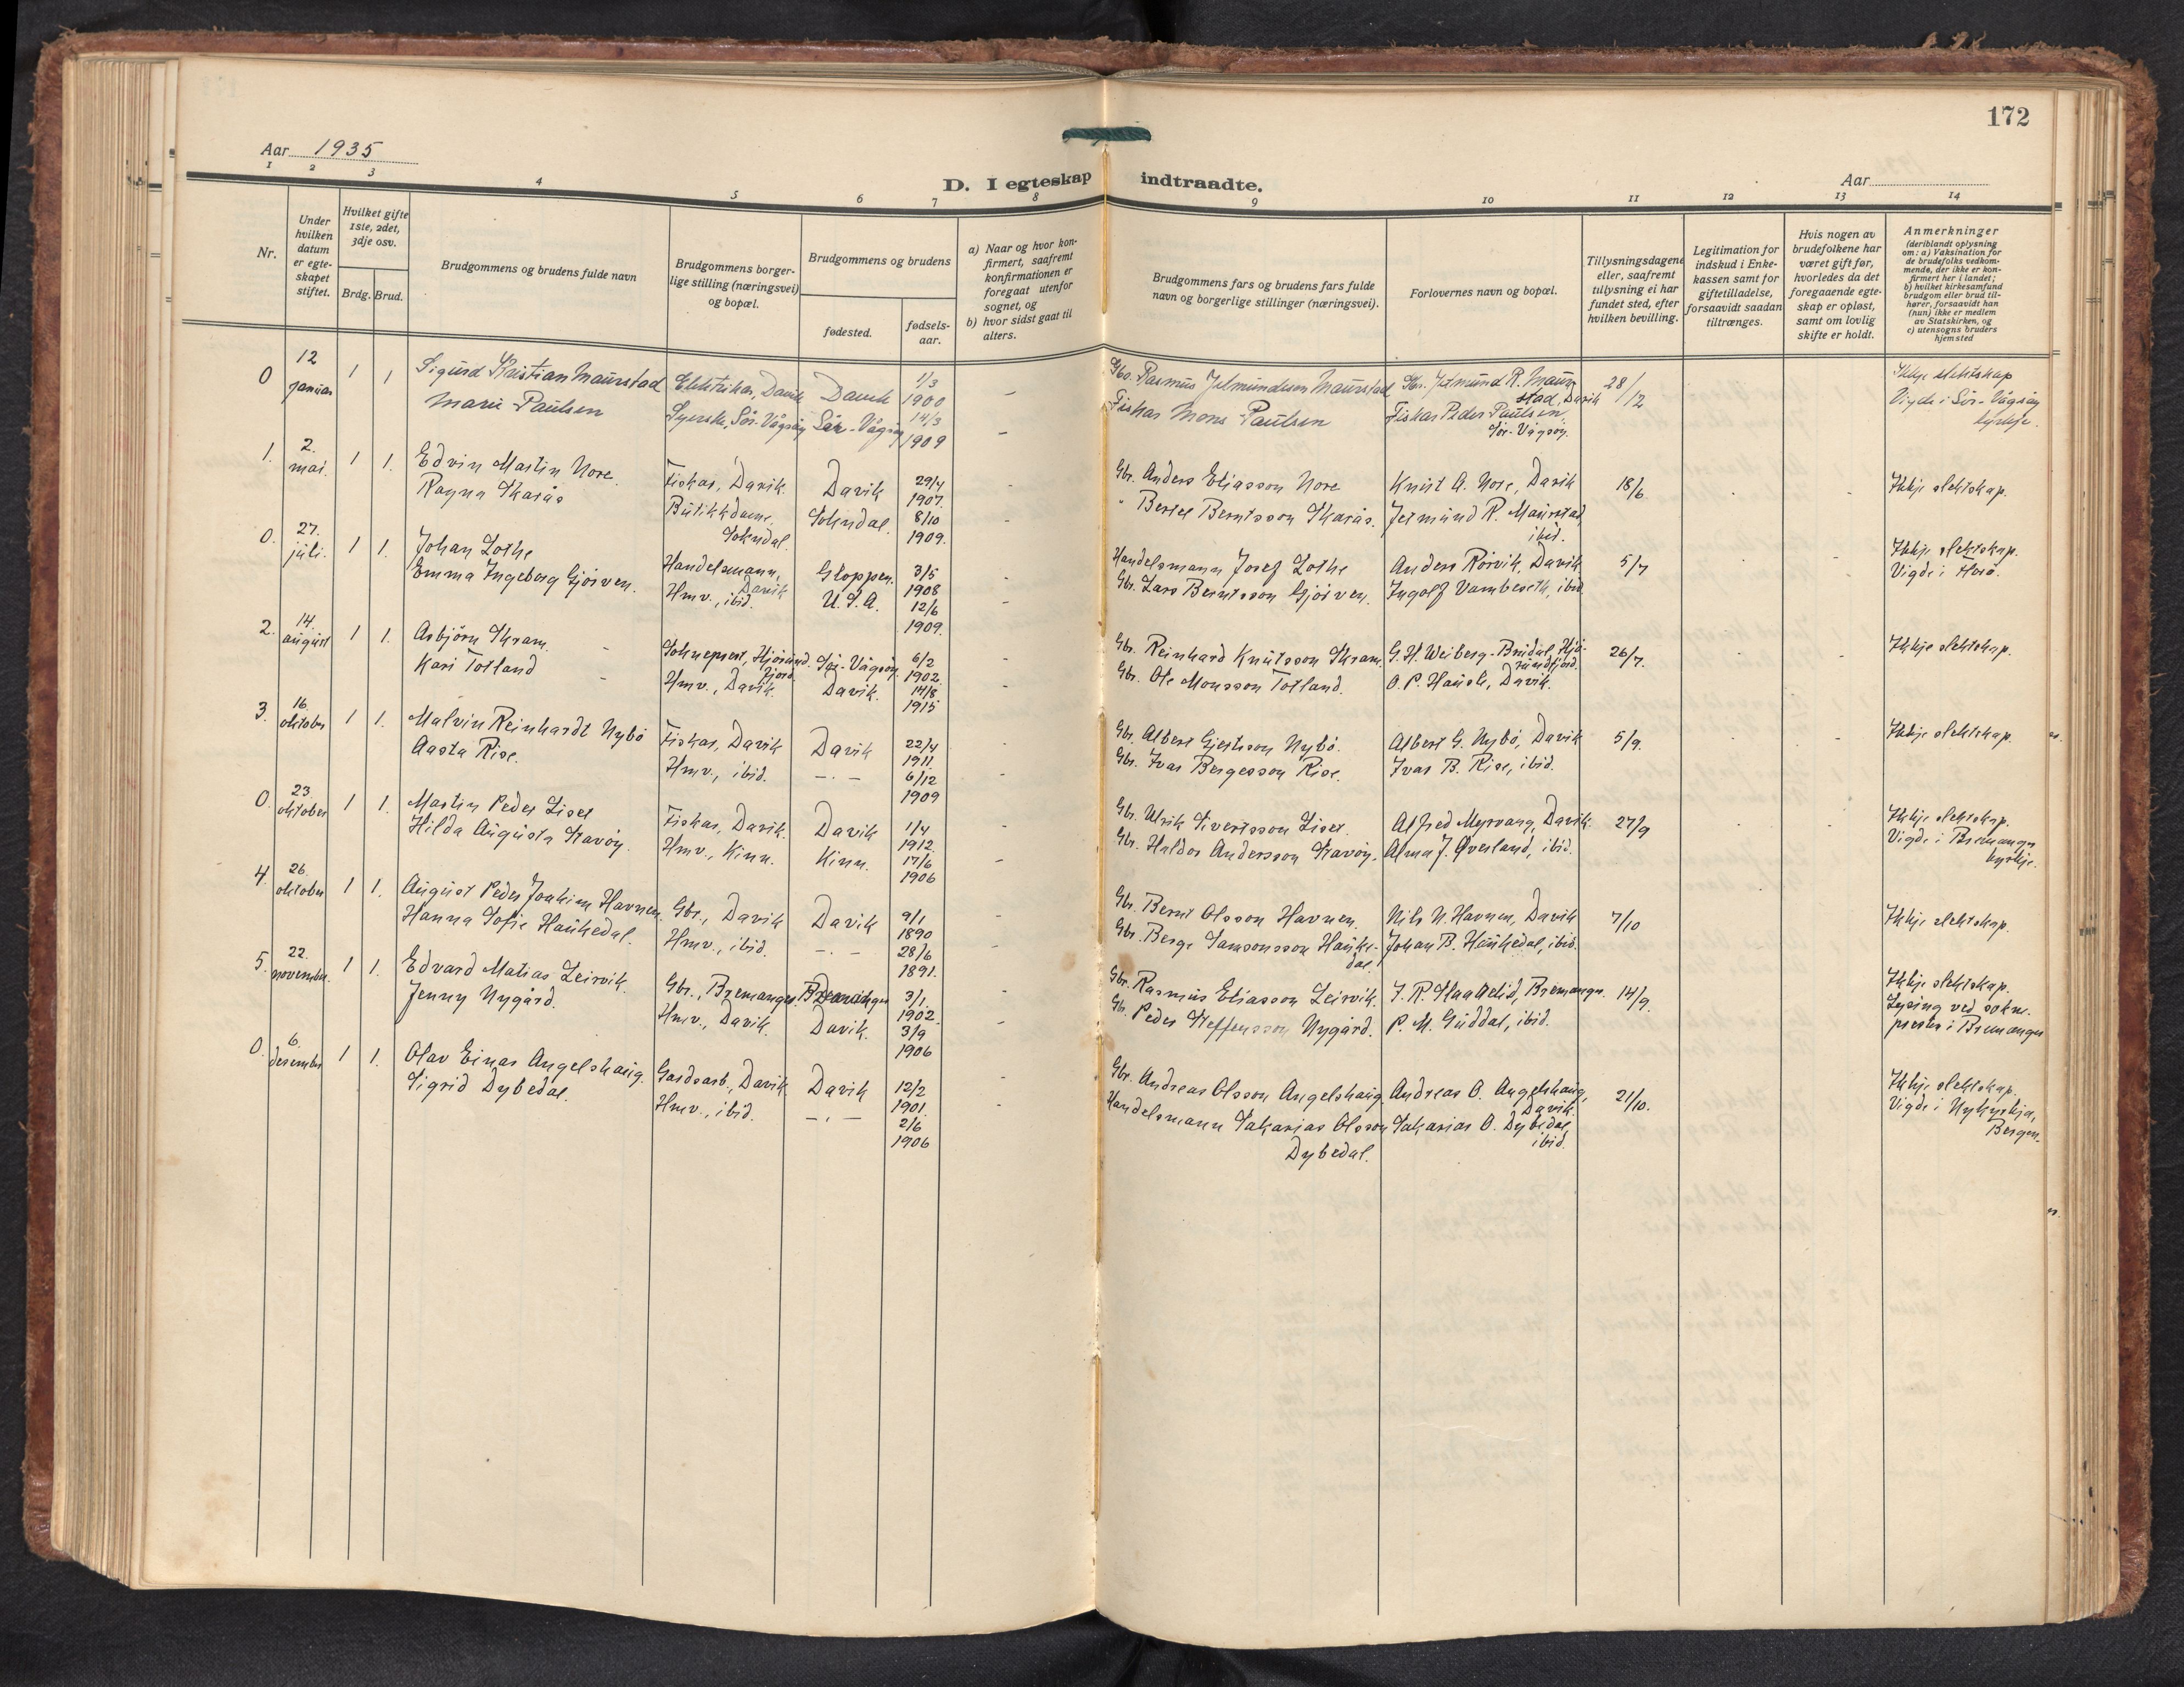 172
Aar 1935
Aar
D. I egteskap indtraadte.
1 2 3 4 5 6 7 8 9 10 11 12 13 14
Nr.
Under hvilken datum er egteskapet stiftet.
Hvilket gifte 1ste, 2det, 3dje osv.
Brdg. Brud.
Brudgommens og brudens fulde navn
Brudgommens borgerlige stilling (næringsvei) og bopæl.
Brudgommens og brudens
fødested.
fødselsaar.
a) Naar og hvor konfirmert, saafremt konfirmationen er foregaat utenfor sognet, og
b) hvor sidst gaat til alters.
Brudgommens fars og brudens fars fulde navn og borgerlige stillinger (næringsvei).
Forlovernes navn og bopæl.
Tillysningsdagene eller, saafremt tillysning ei har fundet sted, efter hvilken bevilling.
Legitimation for indskud i Enkekassen samt for giftetilladelse, forsaavidt saadan tiltrænges.
Hvis nogen av brudefolkene har været gift før, hvorledes da det foregaaende egteskap er opløst, samt om lovlig skifte er holdt.
Anmerkninger (deriblandt oplysning om: a) Vaksination for de brudefolks vedkommende, der ikke er konfirmert her i landet; b) hvilket kirkesamfund brudgom eller brud tilhører, forsaavidt han (hun) ikke er medlem av Statskirken, og c) utensogns bruders hjemsted
0 12 januar 1 1 Sigurd Kristian Maurstad Elektrikar, Davik Davik 1/3 1900 - Gbr. Rasmus Jetmundsen Maurstad Gbr. Jetmund R. Maurstad, Davik 28/12 Ikkje slektskap
Marie Paulsen Syerske, Sör-Vågsöy Sör-Vågsöy 14/3 1909 - Fiskar Mons Paulsen Fiskar Peder Paulsen, Sör-Vågsöy. Vigde i Sör-Vågsöy kyrkje.
1. 2. mai. 1 1. Edvin Martin Nore. Fiskar, Davik. Davik 29/4 1907. - Gbr. Anders Eliasson Nore Knut A. Nore, Davik 18/6 - - Ikkje slektskap.
Ragna Skarås Butikkdame, Sokndal. Sokndal. 8/10 1909. - " Bertel Berntsson Skarås. Jetmund R. Maurstad, ibid.
0. 27. juli. 1 1. Johan Lothe Handelsmann, Davik Gloppen. 3/5 1908 - Handelsmann Josef Lothe Anders Rörvik, Davik 5/7 - - Ikkje slektskap.
Emma Ingeborg Gjörven. Hmv., ibid. U.S.A. 12/6 1909. - Gbr. Lars Berntsson Gjörven. Ingolf Vambeseth, ibid. Vigde i Herö.
2. 14. august 1 1. Asbjörn Skram. Sokneprest, Hjörundfjord. Sör-Vågsöy. 6/2 1902. - Gbr. Reinhard Knutsson Skram. G. H. Weiberg-Bridal, Hjörundfjord. 26/7. - - Ikkje slektskap.
Kari Totland Hmv., Davik. Davik. 14/8 1915 - Gbr. Ole Monsson Totland. O. P. Hausle, Davik.
3. 16. oktober 1 1. Malvin Reinhardt Nybö Fiskar, Davik Davik 22/4 1911. - Gbr. Albert Gjertsson Nybö. Albert G. Nybö, Davik 5/9. - - Ikkje slektskap.
Aasta Rise. Hmv., ibid. - . - 6/12 1909 - Gbr. Ivar Bergesson Rise. Ivar B. Rise, ibid.
0. 23. oktober 1 1. Martin Peder Liset Fiskar, Davik. Davik 1/4 1912. - Gbr. Ulrik Sivertsson Liset. Alfred Myrvang, Davik. 27/9 - - Ikkje slektskap.
Hilda Augusta Stavöy. Hmv., Kinn. Kinn. 17/6 1906 - Gbr. Haldor Andersson Stavöy. Alma J. Øverland, ibid. Vigde i Bremanger kyrkje.
4. 26. oktober 1 1. August Peder Joakim Havnen. Gbr., Davik Davik 9/1 1890 - Gbr. Bernt Olsson Havnen. Nils N. Havnen, Davik 7/10 - - Ikkje slektskap.
Hanna Sofie Haukedal. Hmv., ibid. - . - 28/6 1891. - Gbr. Berge Samsonsson Haukedal. Johan B. Haukedal, ibid.
5. 22. november. 1 1. Edvard Matias Leirvik. Gbr., Bremanger Bremanger 3/1. 1902. - Gbr. Rasmus Eliasson Leirvik. 14/9. - - Ikkje slektskap.
Jenny Nygård. Hmv., Davik. Davik. 3/9 1906 - Gbr. Peder Steffensson Nygård. P. M. Guddal, ibid. Lysing ved sokneprestn i Bremanger
0. 6. desember 1 1. Olav Einar Angelshaug. Gardsarb., Davik. Davik 12/2 1901. - Gbr. Andreas Olsson Angelshaug. Andreas O. Angelshaug, Davik. 21/10. - - Ikkje slektskap.
Sigrid Dybedal. Hmv., ibid. - . - 2/6 1906 - Handelsmann Sakarias Olsson Dybedal. Sakarias O. Dybedal, ibid. Vigde i Nykyrkja, Bergen.